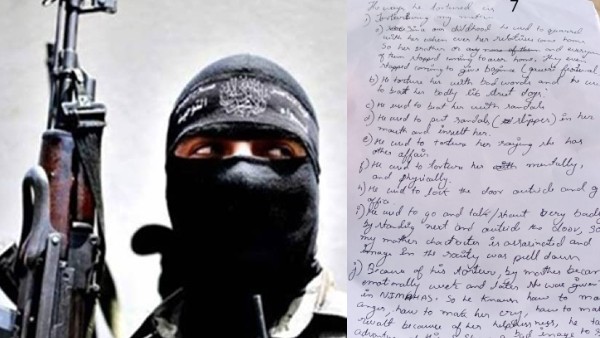 The ways he tortured us
7
1) Torturing my mother
a) Since our childhood he used to quarrel
with her when ever her relatives came home.
So her brother or any more of them and everyone
of them stopped coming to our home, they even
stopped coming to give
b) He torture her with bad words and he used
to beat her badly lie street dogs.
c) He used to beat her with sandals
d) He used to put sandals (slipper) in her
mouth and insult her.
e) He used to torture her saying she has
other affair.
f) He used to torture her mentally,
and physically.
h) He used to lock the door outside and g
offic
i) He used to go and talk/shout very badly
by standing next and outside the door, so
my mother character is assasinated and
image in the socity was pull down
j) Because of his torture, my mother becam
motionally week and later she was given
in NIMHANS. So he knows how to ma
anger, how to make her cry, how to mak
revolt because of her helplessness, he ta
bad image to s